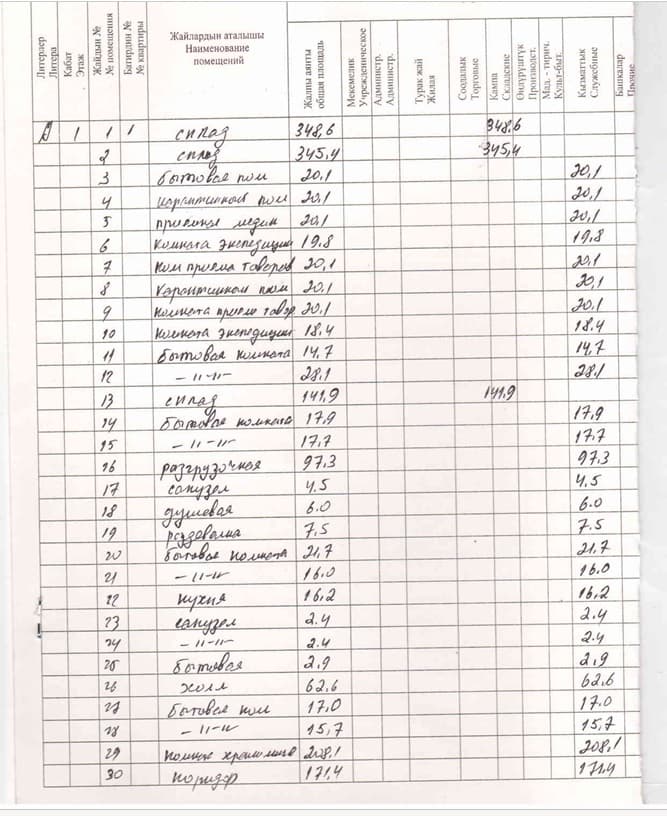 Литерлер Литера
Кабат Этаж
Жайдын № № помещения
Батирдин № № квартиры
Жайлардын аталышы
Наименование
помещений
Жалпы аянты общая площадь
Мекемелик Учрежденическое
Администр. Администр.
Турак жай Жилая
Соодалык Торговые
Кампа Складские
Өндүрүштүк Производст.
Мад. - тирич. Культ-быт.
Кызматтык Служебные
Башкалар Прочие
Д 1 1 1 склад 348,6 348,6
2 склад 345,4 345,4
3 бытовая пом 20,1 20,1
4 карантинная пом 20,1 20,1
5 20,1 20,1
6 комната экспедиции 19,8 19,8
7 ком приема товаров 20,1 20,1
8 карантинном пом 20,1 20,1
9 комната прием товар 20,1 20,1
10 комната экспедиции 18,4 18,4
11 бытовая комната 14,7 14,7
12 -"-"- 28,1 28,1
13 склад 141,9 141,9
14 бытовая комната 17,9 17,9
15 -"-"- 17,7 17,7
16 разгрузочная 97,3 97,3
17 санузел 4,5 4,5
18 душевая 6.0 6.0
19 7,5 7.5
20 бытовая комната 21,7 21,7
21 -"-"- 16.0 16.0
22 кухня 16,2 16,2
23 санузел 2.4 2.4
24 -"-"- 2.4 2.4
25 бытовая 2,9 2,9
26 холл 62,6 62,6
27 бытовая ком 17,0 17.0
28 -"-"- 15,7 15,7
29 208,1 208,1
30 коридор 171,4 171,4